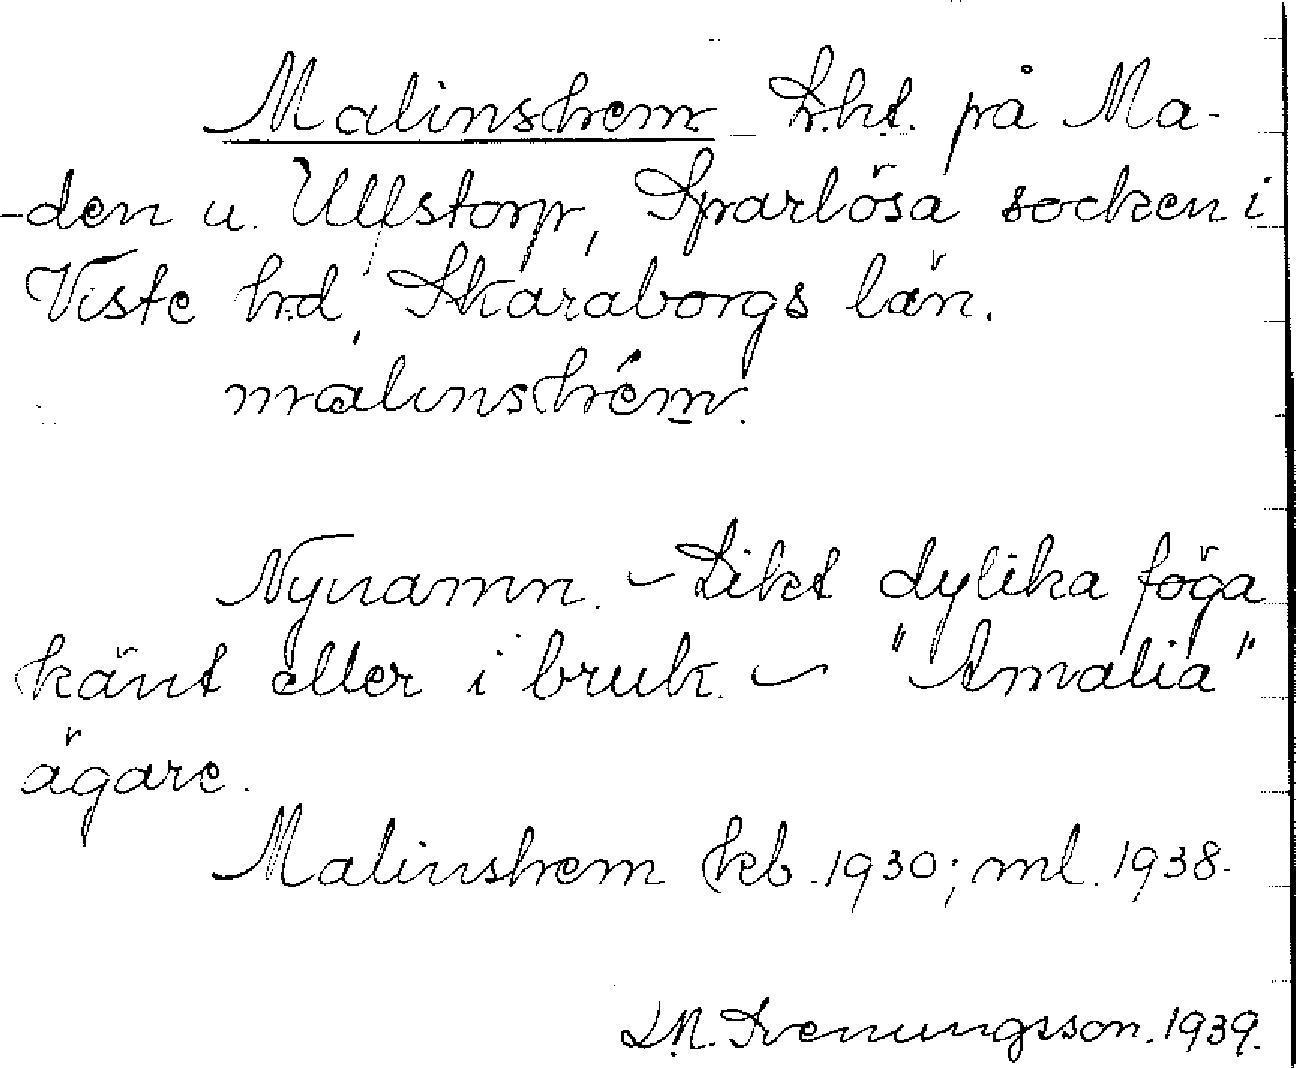 Malinshem L.ht. på Ma-
-den u. Ulfstorp, Sparlösa socken i
Viste h.d, Skaraborgs län.
málinshém.
Nynamn. - Likt dylika föga
känt eller i bruk. - "Amalia"
ägare.
Malinshem kb. 1930; ml. 1938.
J.N. Svenungsson. 1939.